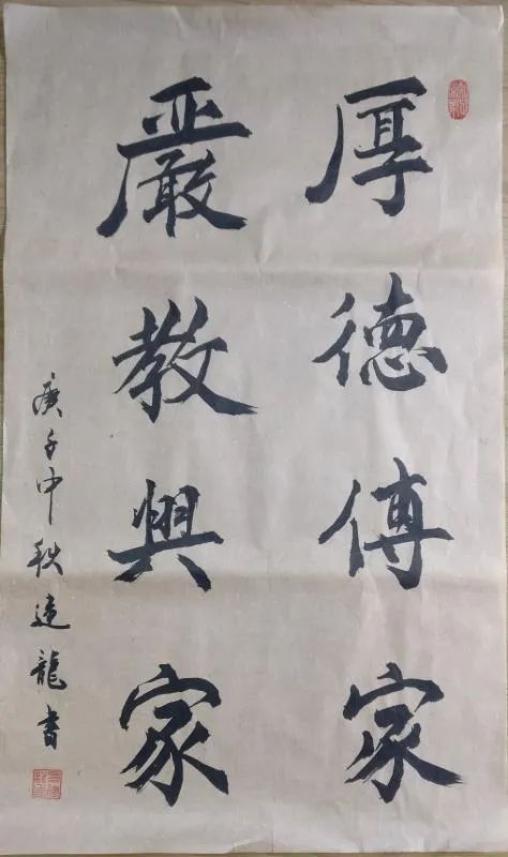 厚德傳家
嚴教興家
庚子中秋建龍書